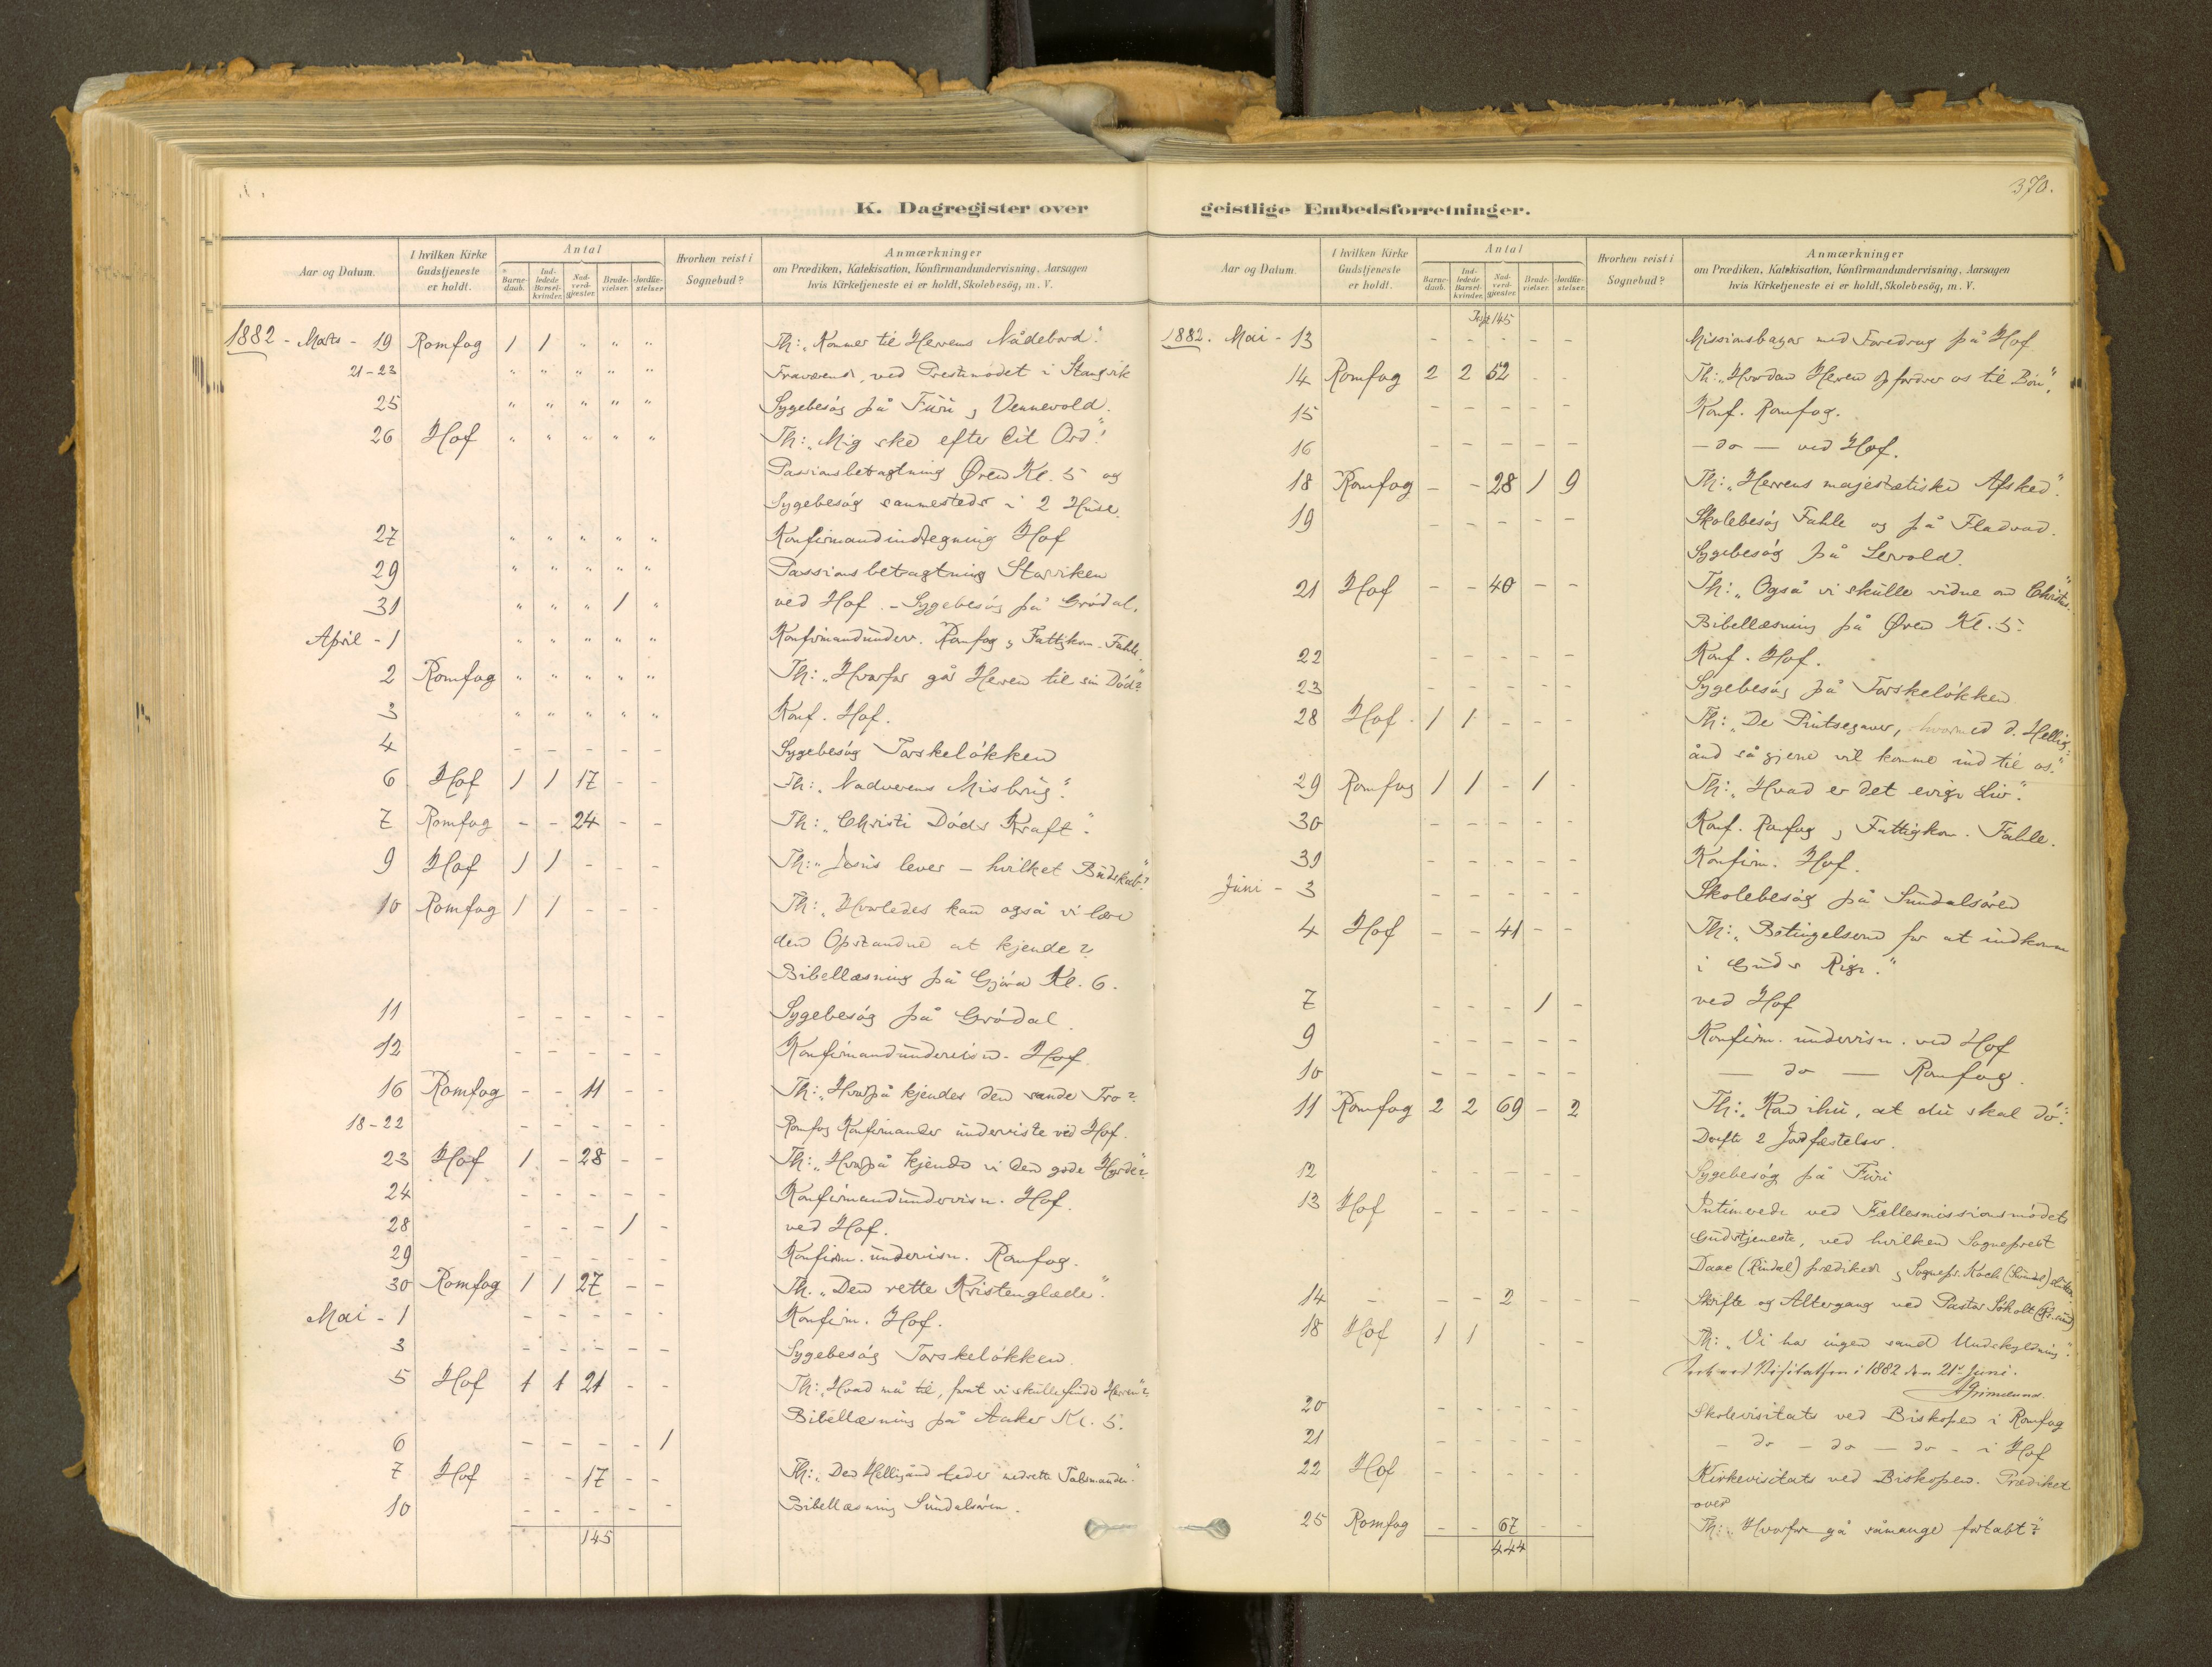 370.
K. Dagregister over geistlige Embedsforretninger.
Aar og Datum. | I hvilken Kirke Gudstjeneste er holdt. | Antal | Barnedaab. | Indledede Barselkvinder. | Nadverdgjæster. | Brudevielser. | Jordfæstelser. | Hvorhen reist i Sognebud? | Anmærkninger om Prædiken, Katekisation, Konfirmandundervisning, Aarsagen hvis Kirketjeneste ei er holdt, Skolebesög, m. V.
1882 - Marts - 19 Romfog 1 1 " " " Th: "Kommer til Herrens Nådebord."
21-23 " " " " " Fraværende, ved Prestemødet i Stangvik
25 " " " " " Sygebesög på Furu, Vennevold.
26 Hof " " " " " Th: "Mig ske efter Dit Ord."
Passionsbetragtning Øren Kl. 5 og
Sygebesög sammesteds i 2 Huse.
27 " " " " " Konfirmandindtegning Hof
29 " " " " " Passionsbetragtning Storviken
31 " " " 1 " ved Hof. - Sygebesög på Grødal.
April - 1 " " " " " Konfirmandunderv. Romfog, Fattigkom. Fahle.
2 Romfog " " " " " Th: "Hvorfor går Herren til sin Død?"
3 " " " " " Konf. Hof.
4 - - - - - Sygebesög Torskeløkken
6 Hof 1 1 17 - - Th: "Nadverens Misbrug."
7 Romfog - - 24 - - Th: "Christi Døds Kraft."
9 Hof 1 1 - - - Th: "Jesus lever - hvilket Budskab!"
10 Romfog 1 1 - - - Th: "Hvorledes kan også vi lære
den Opstandne at kjende?
Bibellæsning på Gjøra Kl. 6.
11 - - - - - Sygebesög på Grødal.
12 - - - - - Konfirmandundervisn. Hof.
16 Romfog - - 11 - - Th: "Hvorpå kjendes den sande Tro?
18-22 - - - - - Romfog Konfirmander underviste ved Hof.
23 Hof 1 - 28 - - Th: "Hvorpå kjende vi den gode Hyrde?"
24 - - - - - Konfirmandundervisn. Hof.
28 - - - 1 - ved Hof.
29 - - - - - Konfirm. undervisn. Romfog.
30 Romfog 1 1 27 - - Th. "Den rette Kristenglæde."
Mai - 1 - - - - - Konfirm. Hof.
3 - - - - - Sygebesög Torskeløkken.
5 Hof 1 1 21 - - Th: "Hvad må til, forat vi skulle finde Herren?"
Bibellæsning på Aaker Kl. 5.
6 - - - - 1
7 Hof - - 17 - - Th: "Den Helligånd Talsmanden."
10 - - - - - Bibellæsning Sundalsøren.
145
Aar og Datum. | I hvilken Kirke Gudstjeneste er holdt. | Antal | Barnedaab. | Indledede Barselkvinder. | Nadverdgjæster. | Brudevielser. | Jordfæstelser. | Hvorhen reist i Sognebud? | Anmærkninger om Prædiken, Katekisation, Konfirmandundervisning, Aarsagen hvis Kirketjeneste ei er holdt, Skolebesög, m. V.
145
1882. Mai - 13 - - - - - Missionsbazar med Foredrag på Hof
14 Romfog 2 2 52 - - Th: "Hvordan Herren opfordrer os til Bøn",
15 - - - - - Konf. Romfog.
16 - - - - - - do - ved Hof.
18 Romfog - - 28 1 9 Th: "Herrens majestætiske Afsked".
19 - - - - - Skolebesög Fahle og på Fladvad.
Sygebesög på Lervold.
21 Hof - - 40 - - Th: "Også vi skulle vidne om Christus."
Bibellæsning på Øren Kl. 5.
22 - - - - - Konf. Hof.
23 - - - - - Sygebesög på Torskeløkken
28 Hof 1 1 - - - Th: "De Pintsegaver, hvormed d. Hellig-
ånd så gjerne vil komme ind til os."
29 Romfog 1 1 - 1 - Th: "Hvad er det evige Liv".
30 - - - - - Konf. Romfog, Fattigkom. Fahle.
31 - - - - - Konfirm. Hof.
Juni - 3 - - - - - Skolebesög på Sundalsøren
4 Hof - - 41 - - Th: "Betingelserne for at indkomme
i Guds Rige."
7 - - - 1 - ved Hof
9 - - - - - Konfirm. undervisn. ved Hof
10 - - - - - - do - Romfog.
11 Romfog 2 2 69 - 2 Th: "Kom ihu, at du skal dø".
Derefter 2 Jordfæstelser.
12 - - - - - Sygebesög på Furu
13 Hof - - - - - Intimerede ved Fællesmissionsmødets
Gudstjeneste, ved hvilken Sogneprest
Daae (Rindal) prædikede, Sognepr. Koch
14 - - - 2 - - - Skrifte og Altergang ved Pastor
18 Hof 1 1 - - Th: "Vi har ingen sand Undskyldning".
ved Visitatsen i 1882 den 21de Juni.
AGrimelund.
20 - - - - - Skolevisitats ved Biskopen i Romfog
21 - - - - - - do - do - do - i Hof
22 Hof - - - - - Kirkevisitats ved Biskopen. Prædiket
over
25 Romfog - - 67 - - Th: "Hvorfor gå såmange fortabt?"
444